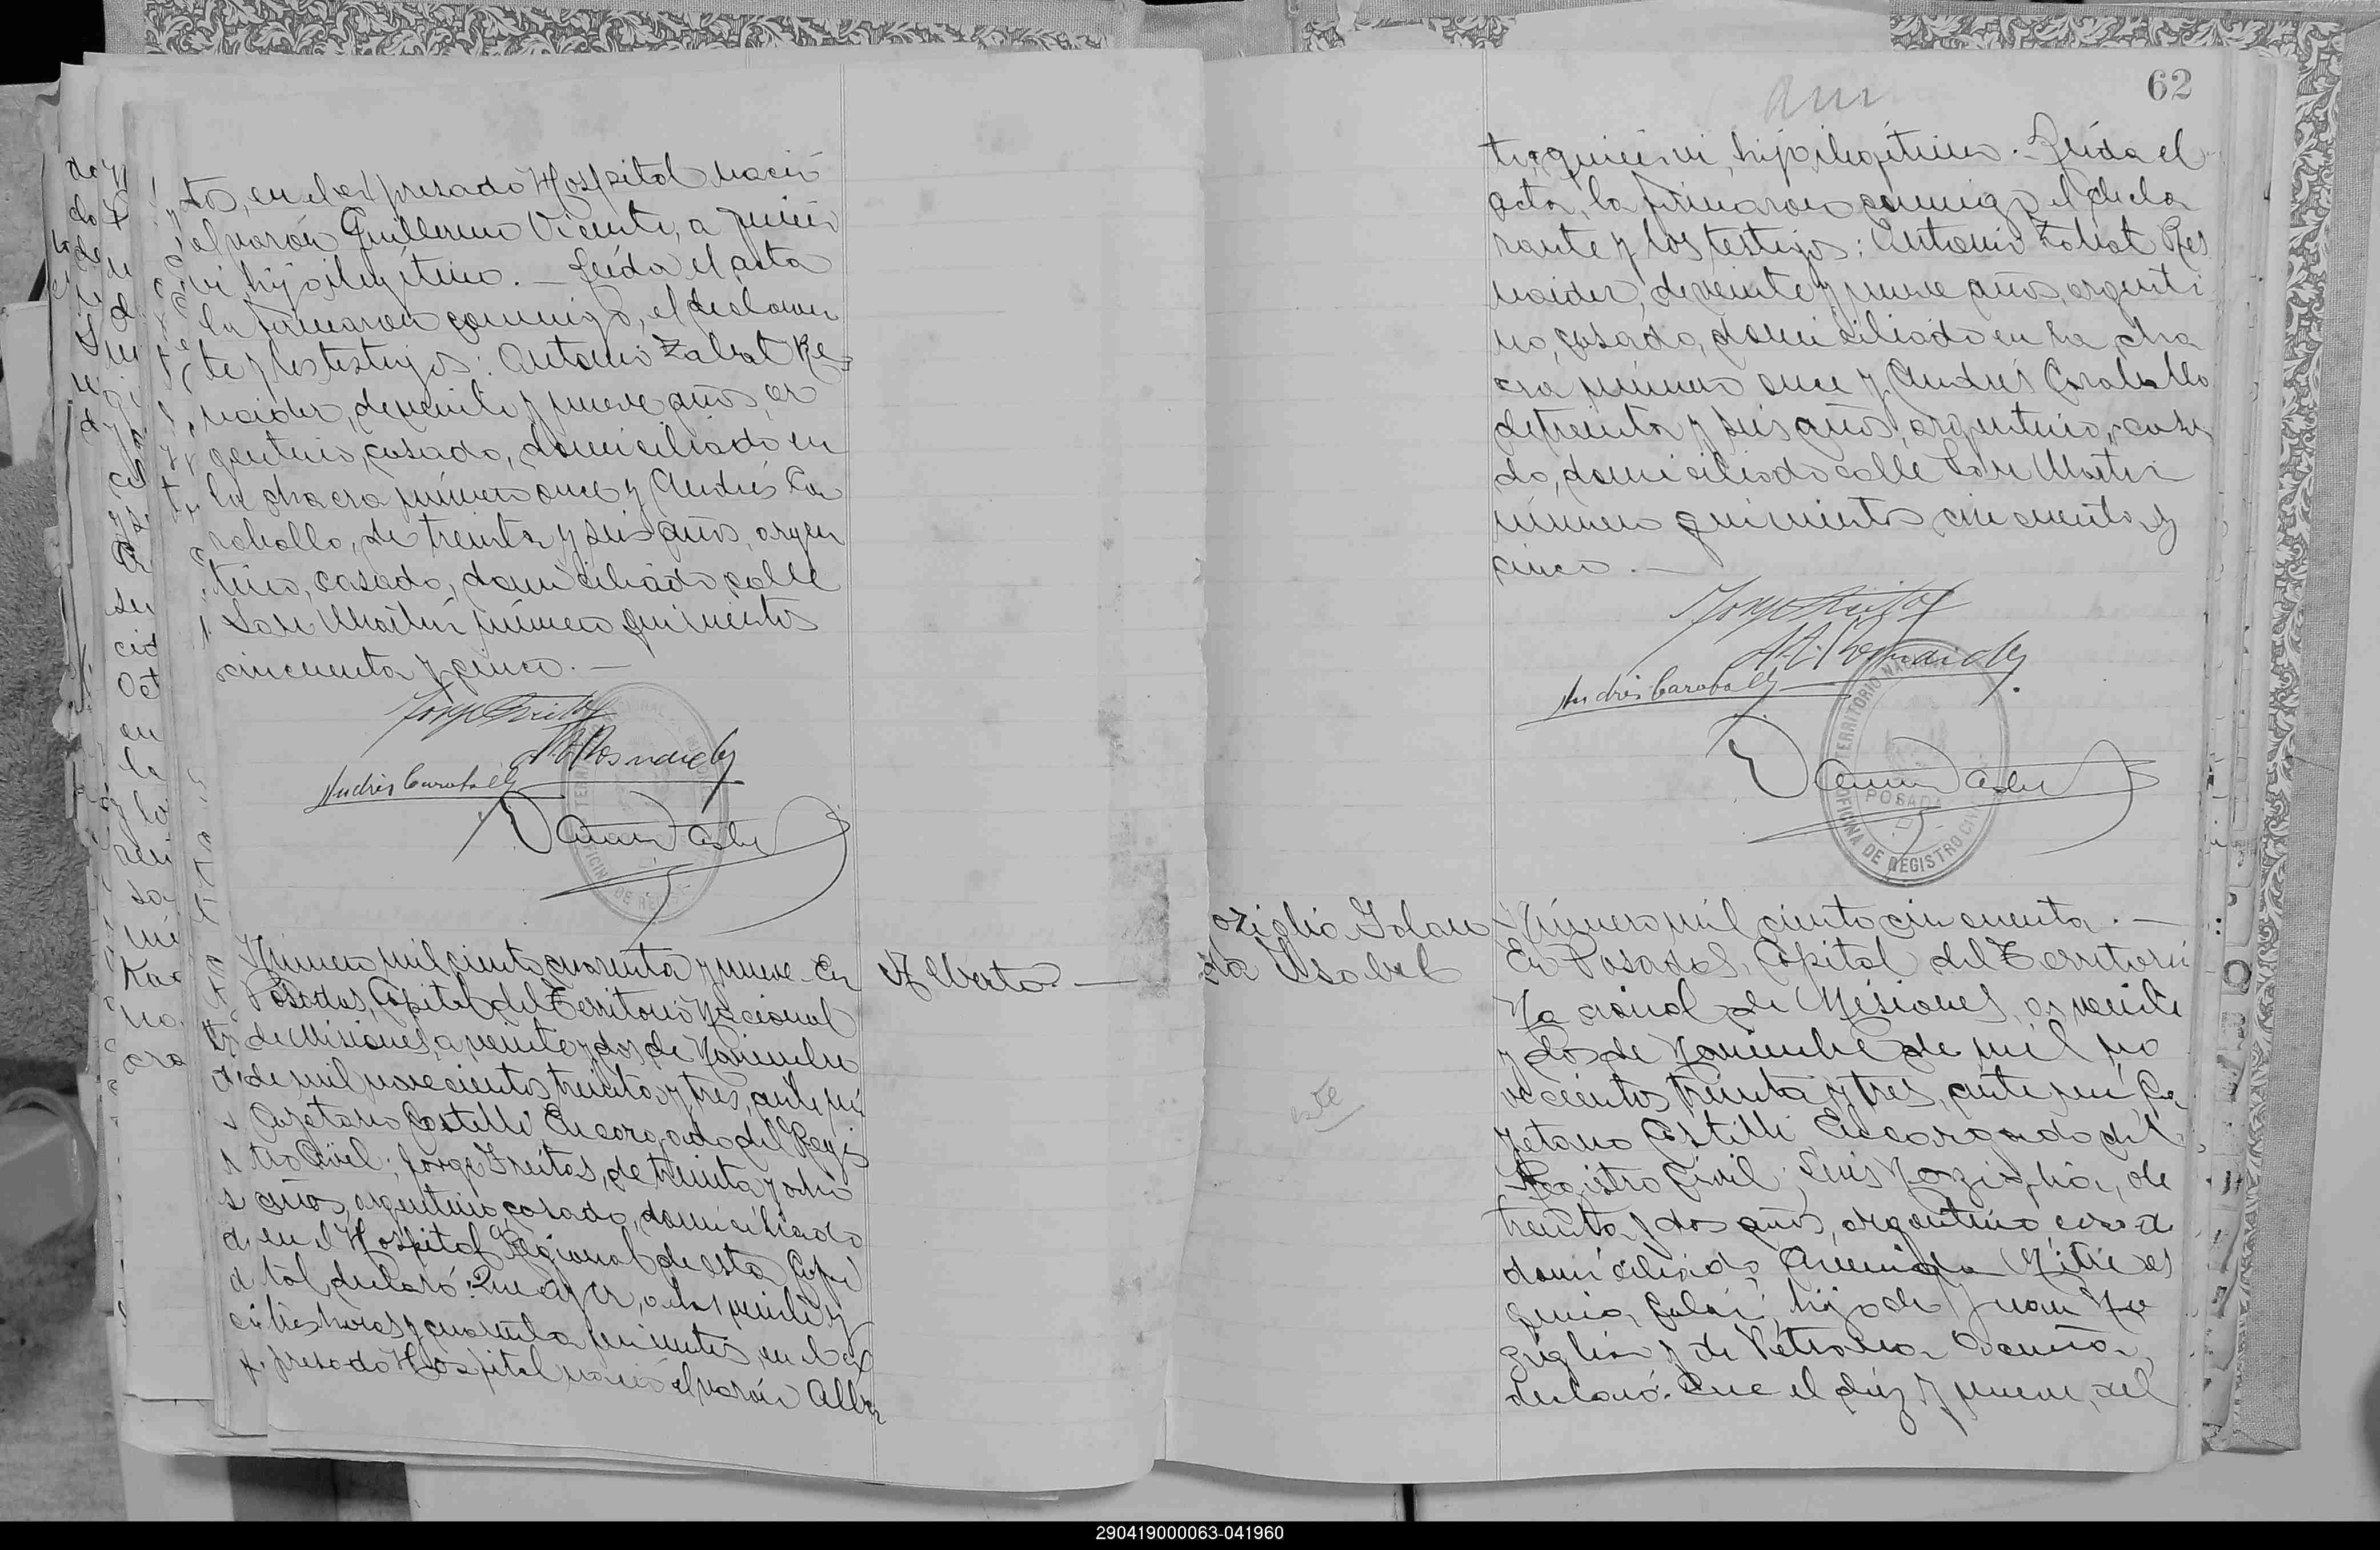 to, en el expresado Hospital nació
el varón Guillermo Vicente, a quien
vi, hijo ilegítimo. — Leída el acta
la firmaron conmigo, el declaran
te y los testigos: Antonio Zabat Res
naider, de veinte y nueve años, ar
gentino, casado, domiciliado en
la chacra número once y Andrés Ca
raballo, de treinta y seis años, argen
tino, casado, domiciliado calle
San Martín número quinientos
cincuenta y cinco. —
Andrés Caraballo
Número mil ciento cuarenta y nueve - En
Posadas, Capital del Territorio Nacional
de Misiones, a veinte y dos de Noviembre
de mil novecientos treinta y tres, ante mi
Cayetano Castelli Encargado del Regis
tro Civil; Jorge Freitas, de treinta y ocho
años, argentino, casado, domiciliado
en el Hospital Regional de esta Capi
tal, declaró: Que ayer, a las veinte y
tres horas y cuarenta minutos, en el ex
presado Hospital nació el varón Alber
Alberto. —
62
to, a quien vi, hijo ilegítimo. - Leída el
acta, la firmaron conmigo el decla
rante y los testigos: Antonio Zabat Res
naider, de veinte y nueve años, argenti
no, casado, domiciliado en la cha
cra número once y Andrés Caraballo
de treinta y seis años, argentino, casa
do, domiciliado calle San Martín
número quinientos cincuenta y
cinco. —
Andrés Caraballo
TERRITORIO NACIONAL
POSADAS
OFICINA DE REGISTRO CIVIL
oziglia Yolan
da Isabel
este
Número mil ciento cincuenta. —
En Posadas, Capital del Territorio
Nacional de Misiones, a veinte
y dos de Noviembre de mil no
vecientos treinta y tres, ante mi Ca
yetano Castelli Encargado del
Registro Civil; Luis Noziglia, de
treinta y dos años, argentino
domiciliado Avenida Mitre es
quina, hijo de Juan No
ziglia y de Petrona
declaró: Que el diez y nueve, del